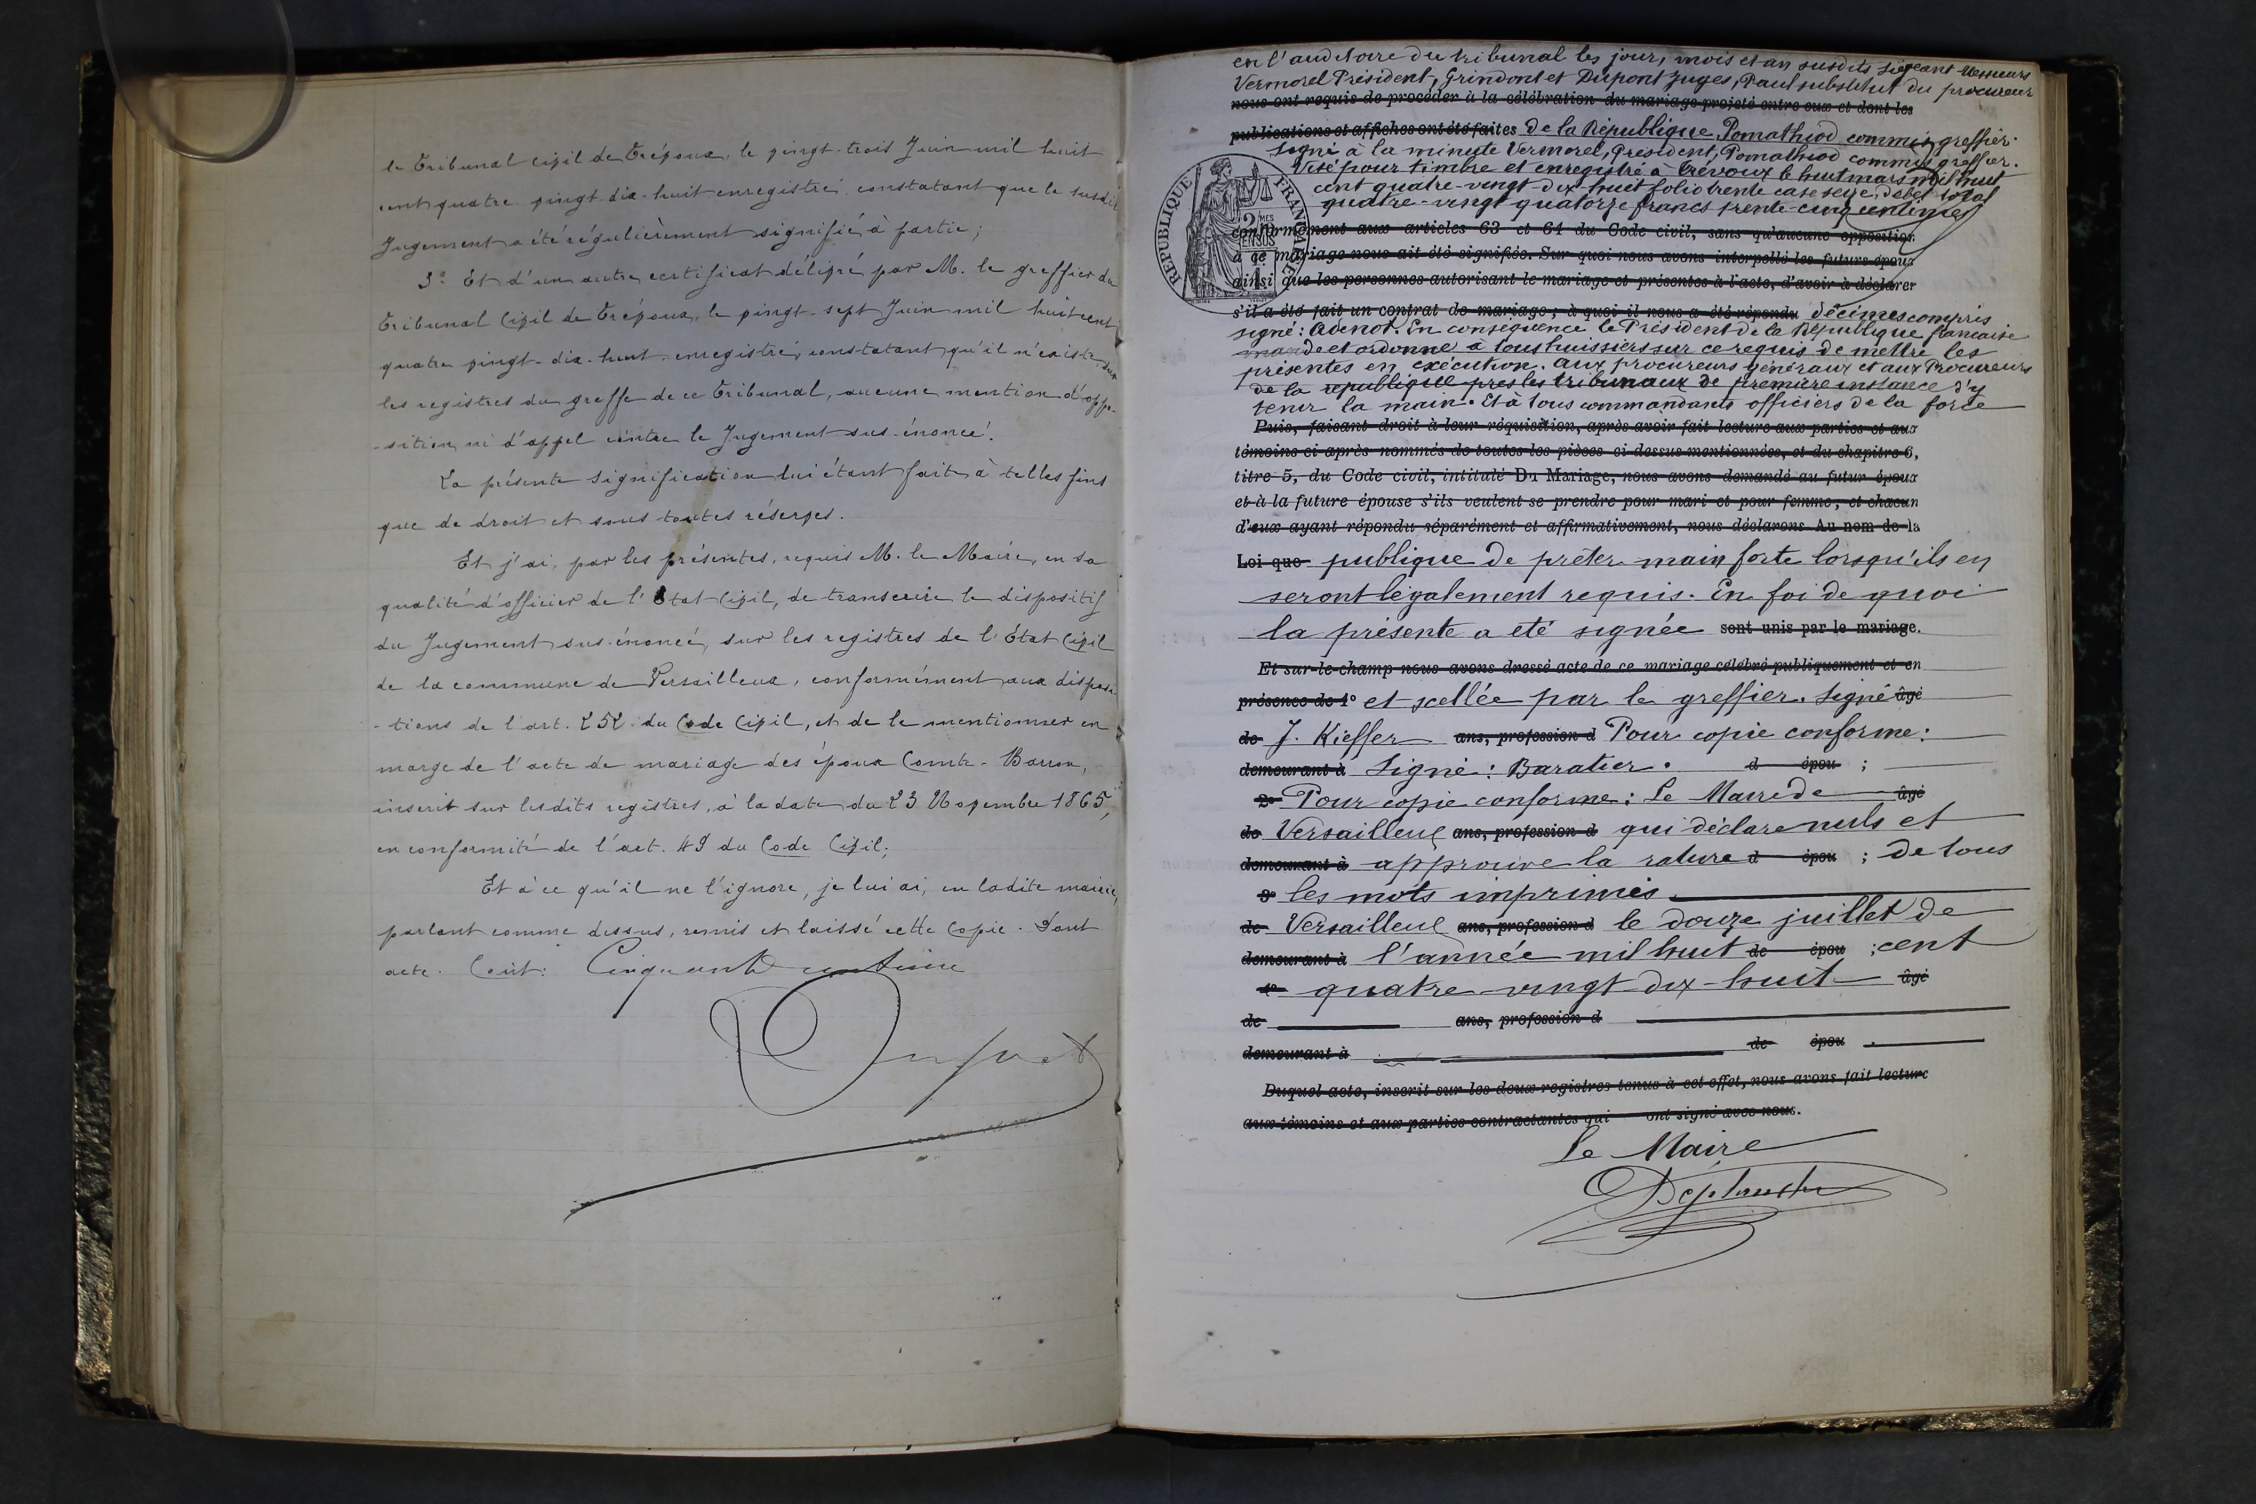 le Tribunal civil de Trévoux, le vingt-trois Juin mil huit
cent quatre vingt dix-huit enregistré, constatant que le susdit
Jugement a été régulièrement signifié à partie;
3° Et d'un autre certificat délivré par M. le greffier du
Tribunal Civil de Trévoux, le vingt-sept Juin mil huit cent
quatre vingt-dix-huit enregistré, constatant qu'il n'existe sur
les registres du greffe de ce Tribunal, aucune mention d'oppo-
-sition ni d'appel contre le Jugement sus-énoncé.
La présente signification lui étant faite à telles fins
que de droit et sous toutes réserves.
Et j'ai, par les présentes, requis M. le Maire, en sa
qualité d'officier de l'État Civil, de transcrire le dispositif
du Jugement sus-énoncé, sur les registres de l'État Civil
de la commune de Versailleux, conformément aux disposi-
-tions de l'art. 252 du Code Civil, et de le mentionner en
marge de l'acte de mariage des époux Comte-Barron,
inscrit sur lesdits registres, à la date du 23 Novembre 1865,
en conformité de l'art. 49 du Code Civil;
Et à ce qu'il ne l'ignore, je lui ai, en ladite mairie,
parlant comme dessus, remis et laissé cette copie. Dont
acte. Coût: Cinquante centime
en l'auditoire du tribunal les jour, mois et an susdits siégeant Messieurs
Vermorel Président, Grindont et Dupont Juges, Paul substitut du procureur
nous ont requis de procéder à la célébration du mariage projeté entre eux et dont les
publications et affiches ont été faites de la République Pomathiod commis greffier.
Signé à la minute Vermorel, Président, Pomathiod commis greffier.
Visé pour timbre et enregistré à Trévoux le huit mars mil huit
cent quatre-vingt dix-huit folio trente case seize, debet total
quatre-vingt quatorze francs trente-cinq centimes
REPUBLIQUE FRANCAISE
2 MES
EN SUS
conformément aux articles 63 et 64 du Code civil, sans qu'aucune opposition
à ce mariage nous ait été signifiée. Sur quoi nous avons interpellé les futurs époux
ainsi que les personnes autorisant le mariage et présentes à l'acte, d'avoir à déclarer
s'il a été fait un contrat de mariage; à quoi il nous a été répondu décimes compris
signé: Adenot. En conséquence le Président de la République française
mande et ordonne à tous huissiers sur ce requis de mettre les
présentes en exécution. aux procureurs généraux et aux Procureurs
de la république près les tribunaux de première instance d'y
tenir la main. Et à tous commandants officiers de la force
Puis, faisant droit à leur réquisition, après avoir fait lecture aux parties et aux
témoins ci après nommés de toutes les pièces ci-dessus mentionnées, et du chapitre 6,
titre 5, du Code civil, intitulé Du Mariage, nous avons demandé au futur époux
et à la future épouse s'ils veulent se prendre pour mari et pour femme, et chacun
d'eux ayant répondu séparément et affirmativement, nous déclarons Au nom de la
Loi que publique de prêter main forte lorsqu'ils en
seront légalement requis. En foi de quoi
la présente a été signée sont unis par le mariage.
Et sur-le-champ nous avons dressé acte de ce mariage célébré publiquement et en
présence de 1° et scellée par le greffier. Signé âgé
de J. Kieffer ans, profession d Pour copie conforme:
demeurant à Signé: Baratier. d épou ;
2° Pour copie conforme: Le Maire de âgé
de Versailleux ans, profession d qui déclare nuls et
demeurant à approuve la rature d épou ; de tous
3° les mots imprimés.
de Versailleux ans, profession d le douze juillet de
demeurant à l'année mil huit de épou ; cent
4° quatre-vingt-dix-huit âgé
de ans, profession d
demeurant à de épou .
Duquel acte, inscrit sur les deux registres tenus à cet effet, nous avons fait lecture
aux témoins et aux parties contractantes qui ont signé avec nous.
Le Maire